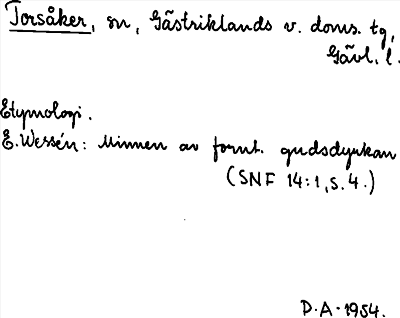 Torsåker, sn, Gästriklands v. doms. tg,
Gävl. l.
Etymologi.
E. Wessén: Minnen av fornt. gudsdyrkan
(SNF 14:1, s. 4.)
D. A. 1954.